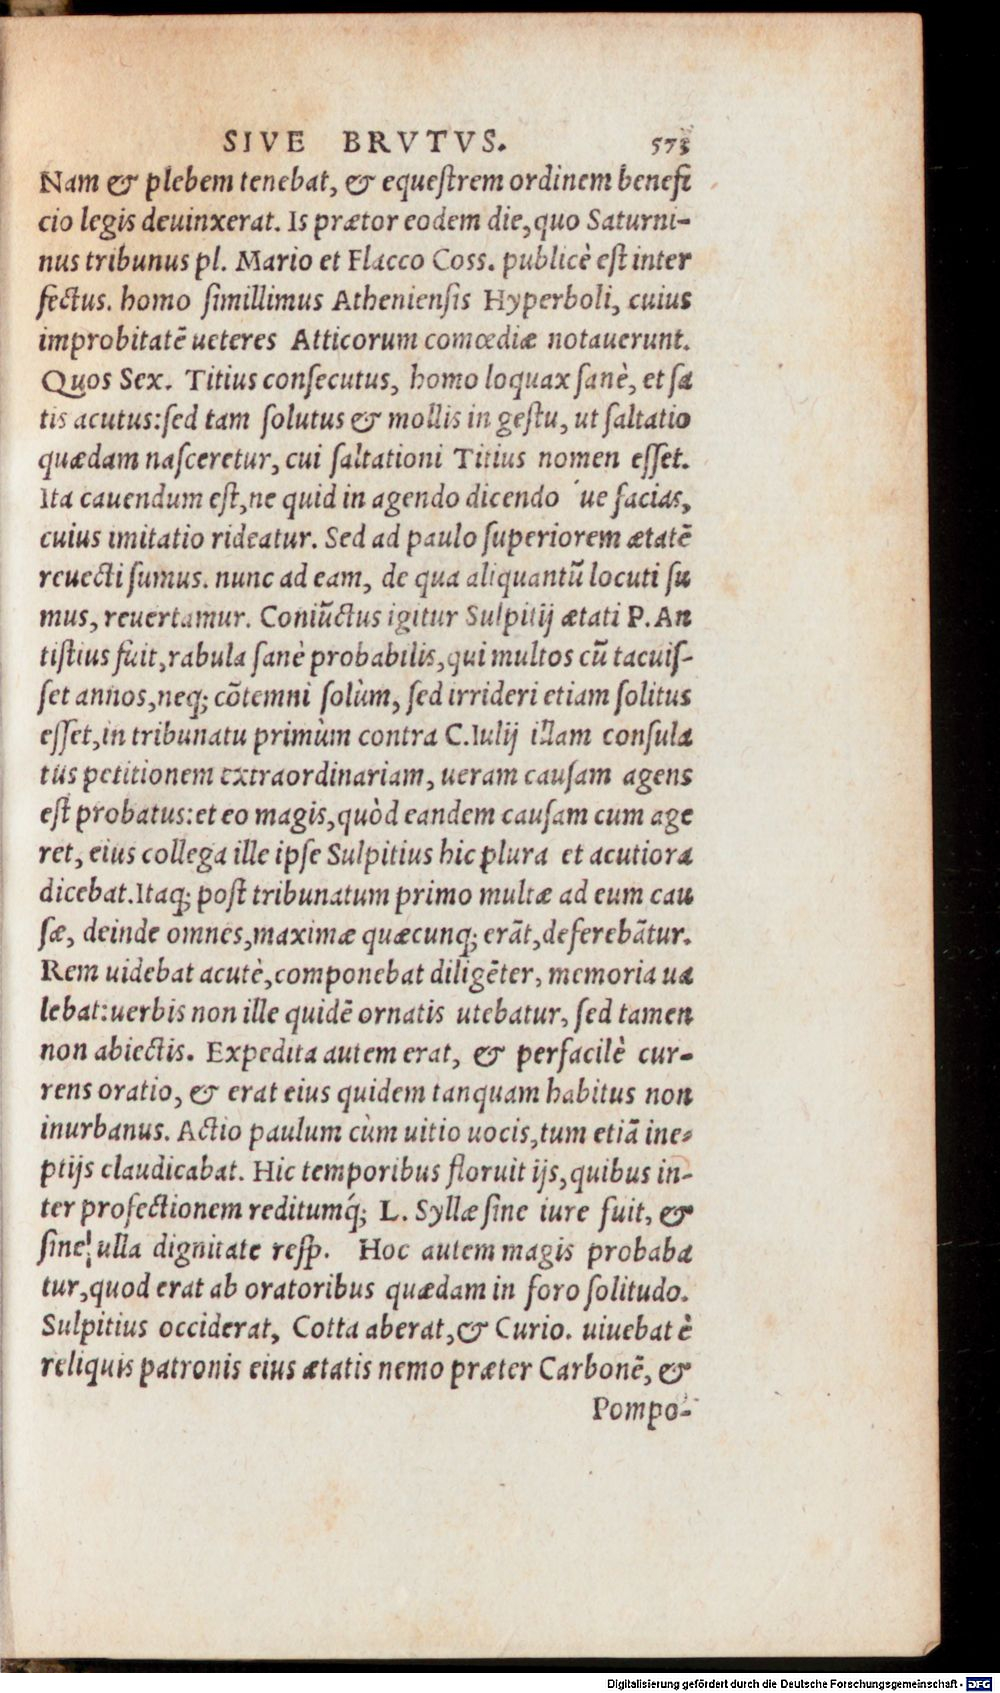 SIVE BRVTVS. 573
Nam & plebem tenebat, & equeſtrem ordinem benefi
cio legis deuinxerat. Is prætor eodem die, quo Saturni-
nus tribunus pl. Mario et Flacco Coss. publicè eſt inter
fectus. homo ſimillimus Athenienſis Hyperboli, cuius
improbitatē ueteres Atticorum comœdiæ notauerunt.
Quos Sex. Titius conſecutus, homo loquax ſanè, et ſa
tis acutus: ſed tam ſolutus & mollis in geſtu, ut ſaltatio
quædam naſceretur, cui ſaltationi Titius nomen eſſet.
Ita cauendum eſt, ne quid in agendo dicendo ue facias,
cuius imitatio rideatur. Sed ad paulo ſuperiorem ætatē
reuecti ſumus. nunc ad eam, de qua aliquantū locuti ſu
mus, reuertamur. Coniūctus igitur Sulpitij ætati P. An
tiſtius fuit, rabula ſanè probabilis, qui multos cū tacuiſ-
ſet annos, neq; cōtemni ſolùm, ſed irrideri etiam ſolitus
eſſet, in tribunatu primùm contra C. Iulij illam conſula
tus petitionem extraordinariam, ueram cauſam agens
eſt probatus: et eo magis, quòd eandem cauſam cum age
ret, eius collega ille ipſe Sulpitius hic plura et acutiora
dicebat. Itaq; poſt tribunatum primo multæ ad eum cau
ſæ, deinde omnes, maximæ quæcunq; erāt, deferebātur.
Rem uidebat acutè, componebat diligēter, memoria ua
lebat: uerbis non ille quidē ornatis utebatur, ſed tamen
non abiectis. Expedita autem erat, & perfacilè cur-
rens oratio, & erat eius quidem tanquam habitus non
inurbanus. Actio paulum cùm uitio uocis, tum etiā ine-
ptijs claudicabat. Hic temporibus floruit ijs, quibus in-
ter profectionem reditumq́; L. Syllæ ſine iure fuit, &
ſine ulla dignitate reſp. Hoc autem magis probaba
tur, quod erat ab oratoribus quædam in foro ſolitudo.
Sulpitius occiderat, Cotta aberat, & Curio. uiuebat è
reliquis patronis eius ætatis nemo præter Carbonē, &
Pompo-
Digitalisierung gefördert durch die Deutsche Forschungsgemeinschaft - DFG